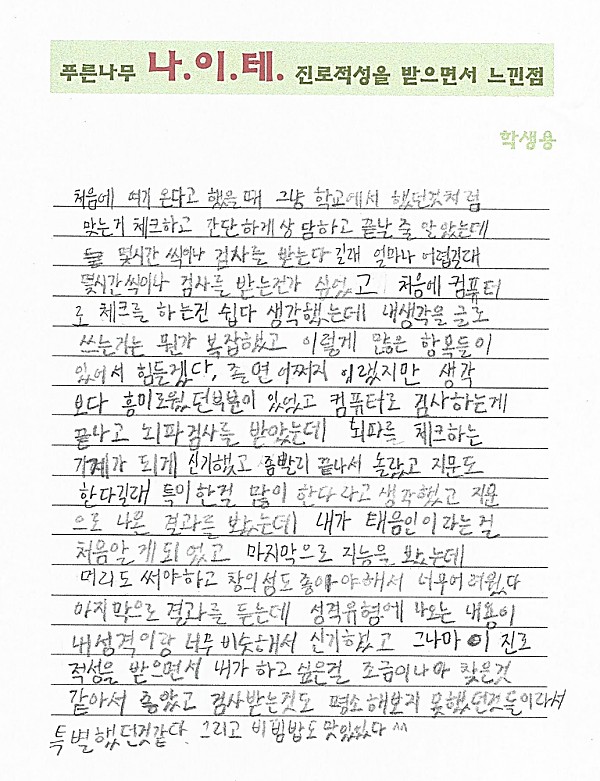 푸른나무 나.이.테. 진로적성을 받으면서 느낀점
학생용
처음에 여기 온다고 했을때 그냥 학교에서 했던것처럼
맞는거 체크하고 간단하게 상담하고 끝날 줄 알았는데
몇시간 씩이나 검사를 받는다 길래 얼마나 어렵길래
몇시간씩이나 검사를 받는건가 싶었고 처음에 컴퓨터
로 체크를 하는건 쉽다 생각했는데 내생각을 글로
쓰는거는 뭔가 복잡했고 이렇게 많은 항목들이
있어서 힘들겠다, 졸면어쩌지 이랬지만 생각
보다 흥미로웠던부분이 있었고 컴퓨터로 검사하는게
끝나고 뇌파검사를 받았는데 뇌파를 체크하는
기계가 되게 신기했고 좀빨리 끝나서 놀랐고 지문도
한다길래 특이한걸 많이 한다라고 생각했고 지문
으로 나온 결과를 봤는데 내가 태음인이라는걸
처음알게되었고 마지막으로 지능을 봤는데
머리도 써야하고 창의성도 좋아야해서 너무어려웠다
마지막으로 결과를 듣는데 성격유형에 나오는 내용이
내성격이랑 너무비슷해서 신기했고 그나마 이 진로
적성을 받으면서 내가 하고싶은걸 조금이나마 찾은것
같아서 좋았고 검사받는것도 평소해보지 못했던것들이라서
특별했던것같다. 그리고 비빔밥도 맛있었다 ^^